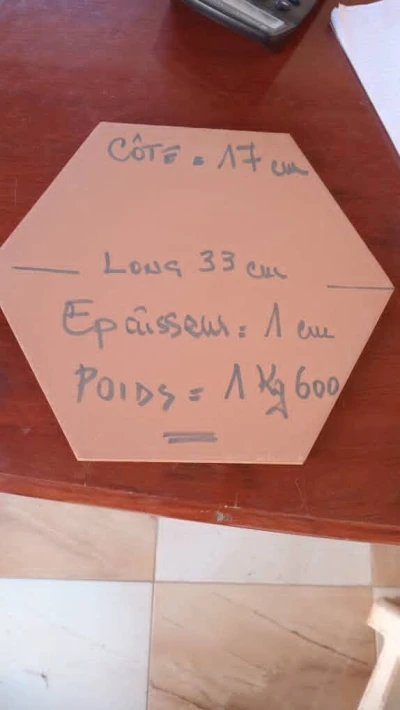 CÔTE = 17 cm
LONG 33 cm
Epaisseur = 1 cm
POIDS = 1 Kg 600